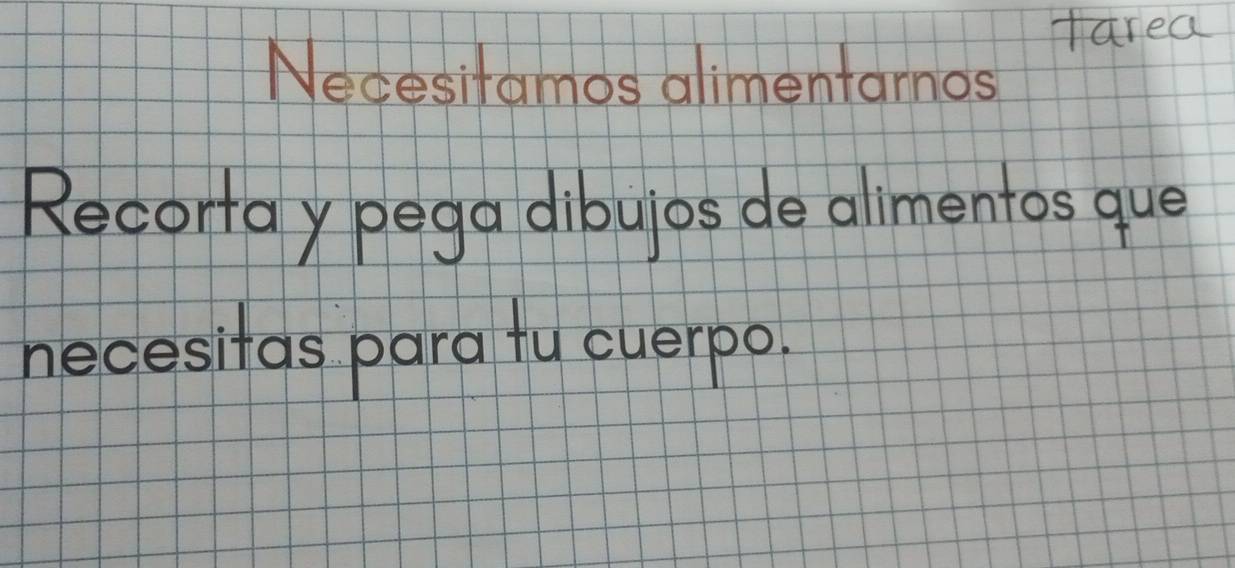 tarea
Necesitamos alimentarnos
Recorta y pega dibujos de alimentos que
necesitas para tu cuerpo.